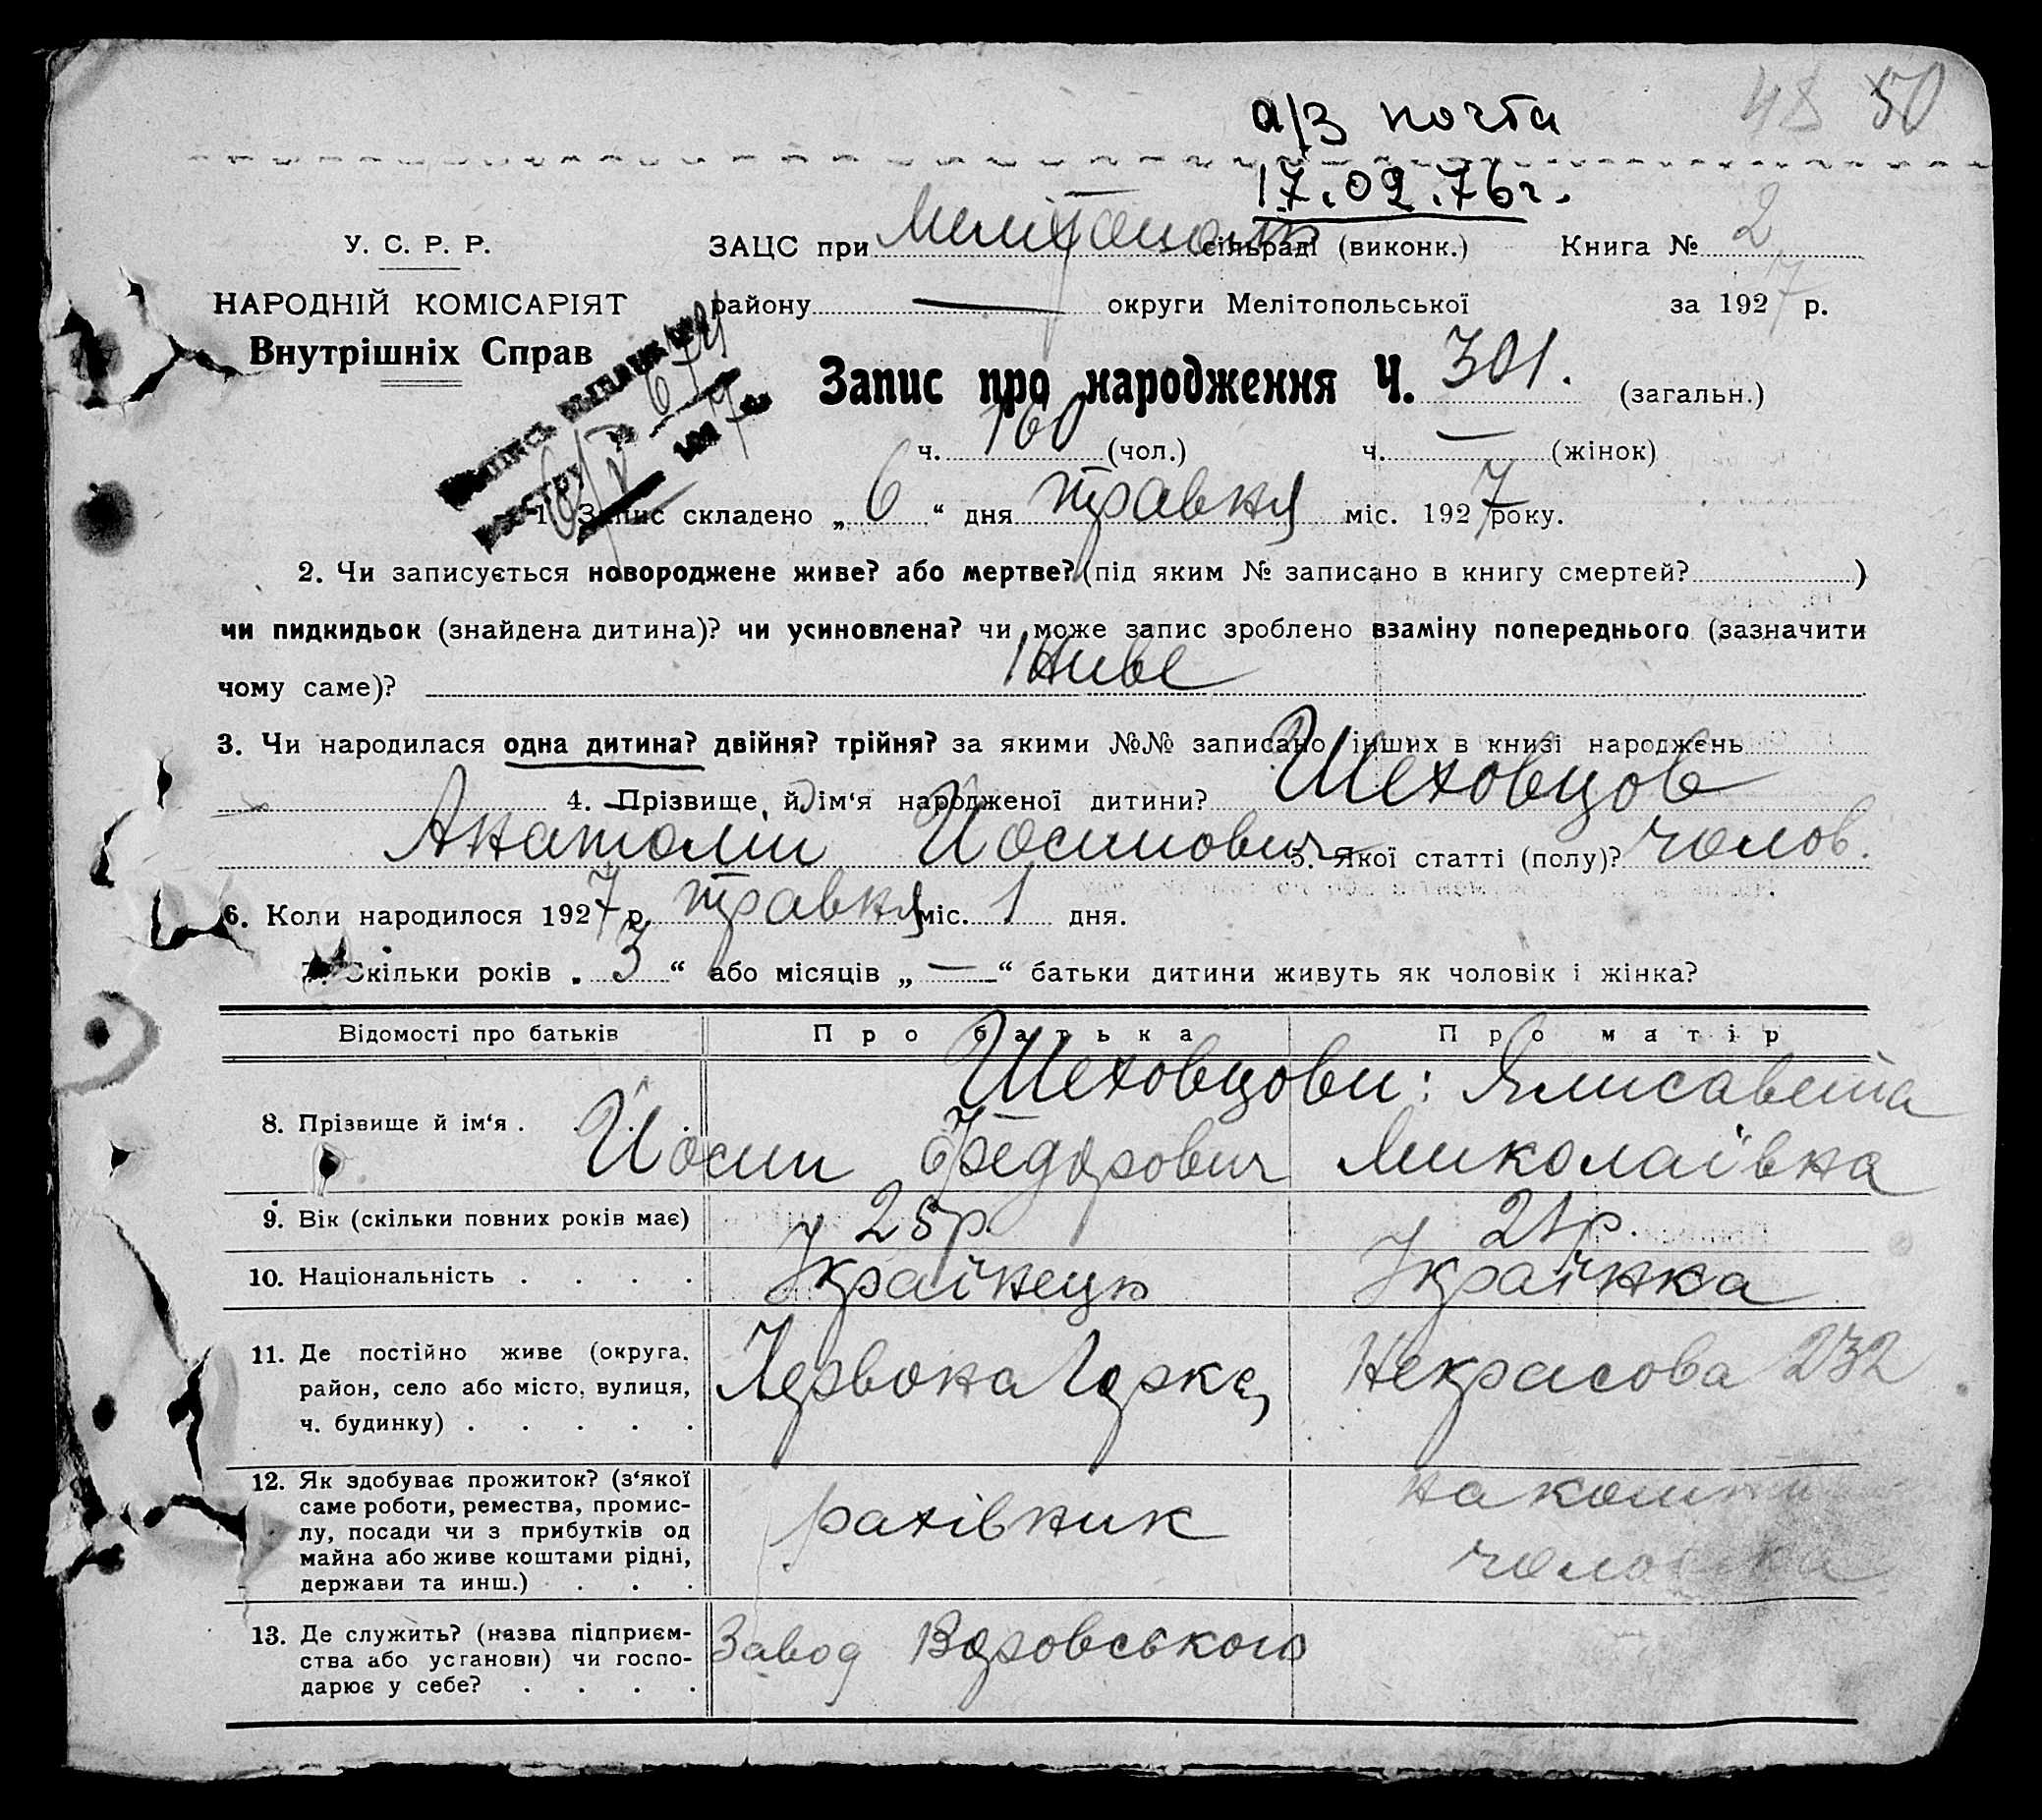 48 50
а/з почта
17.02.76г.
У. С. Р. Р.
ЗАЦС при Мелітополь сільраді (виконк.) Книга № 2
НАРОДНІЙ КОМІСАРІЯТ
району — округи Мелітопольської за 1927 р.
Внутрішніх Справ
Запис про народження Ч. 301. (загальн.)
ч. 160 (чол.) ч. — (жінок)
1. Запис складено „ 6 “ дня травня міс. 1927 року.
2. Чи записується новороджене живе? або мертве? (під яким № записано в книгу смертей? )
чи пидкидьок (знайдена дитина)? чи усиновлена? чи може запис зроблено взаміну попереднього (зазначити
чому саме)? Живе
3. Чи народилася одна дитина? двійня? трійня? за якими №№ записано інших в книзі народжень
4. Прізвище й ім‘я народженої дитини? Шеховцов
Анатолій Йосипович 5. Якої статті (полу)? чолов.
6. Коли народилося 1927 р. травня міс. 1 дня.
7. Скільки років „ 3 “ або місяців „ — “ батьки дитини живуть як чоловік і жінка?
Відомості про батьків Про батька Про матір
Шеховцови: Ялисавета
8. Прізвище й ім‘я . Йосип Федорович Миколаївна
9. Вік (скільки повних років має) 25р. 21р.
10. Національність . . . . Українець Українка
11. Де постійно живе (округа,
район, село або місто, вулиця, Червона Горка, Некрасова 232
ч. будинку) . . . . .
12. Як здобуває прожиток? (з‘якої
саме роботи, ремества, промис-
лу, посади чи з прибутків од рахівник на кошти
майна або живе коштами рідні, чоловіка
держави та инш.) . . .
13. Де служить? (назва підприєм-
ства або установи) чи госпо- Завод Воровського
дарює у себе? . . . .